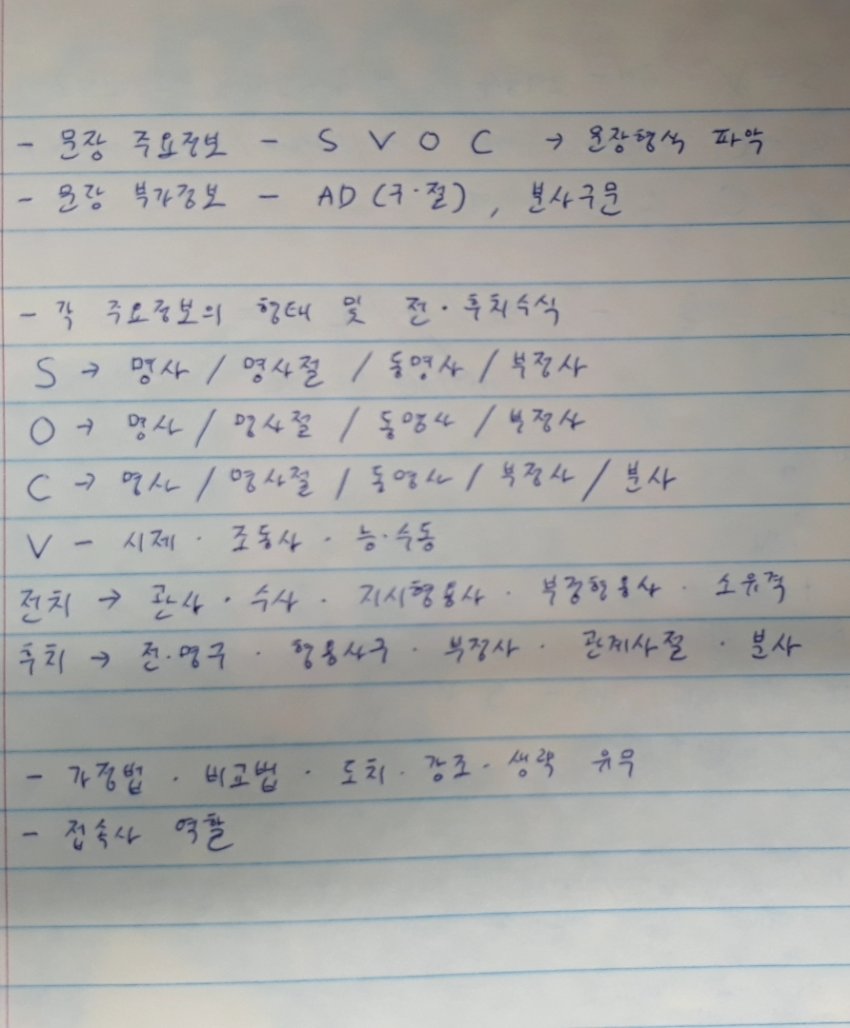 - 문장 주요정보 - S V O C → 문장형식 파악
- 문장 부가정보 - AD (구·절) , 분사구문
- 각 주요정보의 형태 및 전·후치수식
S → 명사 / 명사절 / 동명사 / 부정사
O → 명사 / 명사절 / 동명사 / 부정사
C → 명사 / 명사절 / 동명사 / 부정사 / 분사
V - 시제 · 조동사 · 능·수동
전치 → 관사 · 수사 · 지시형용사 · 부정형용사 · 소유격
후치 → 전·명구 · 형용사구 · 부정사 · 관계사절 · 분사
- 가정법 · 비교법 · 도치 · 강조 · 생략 유무
- 접속사 역할